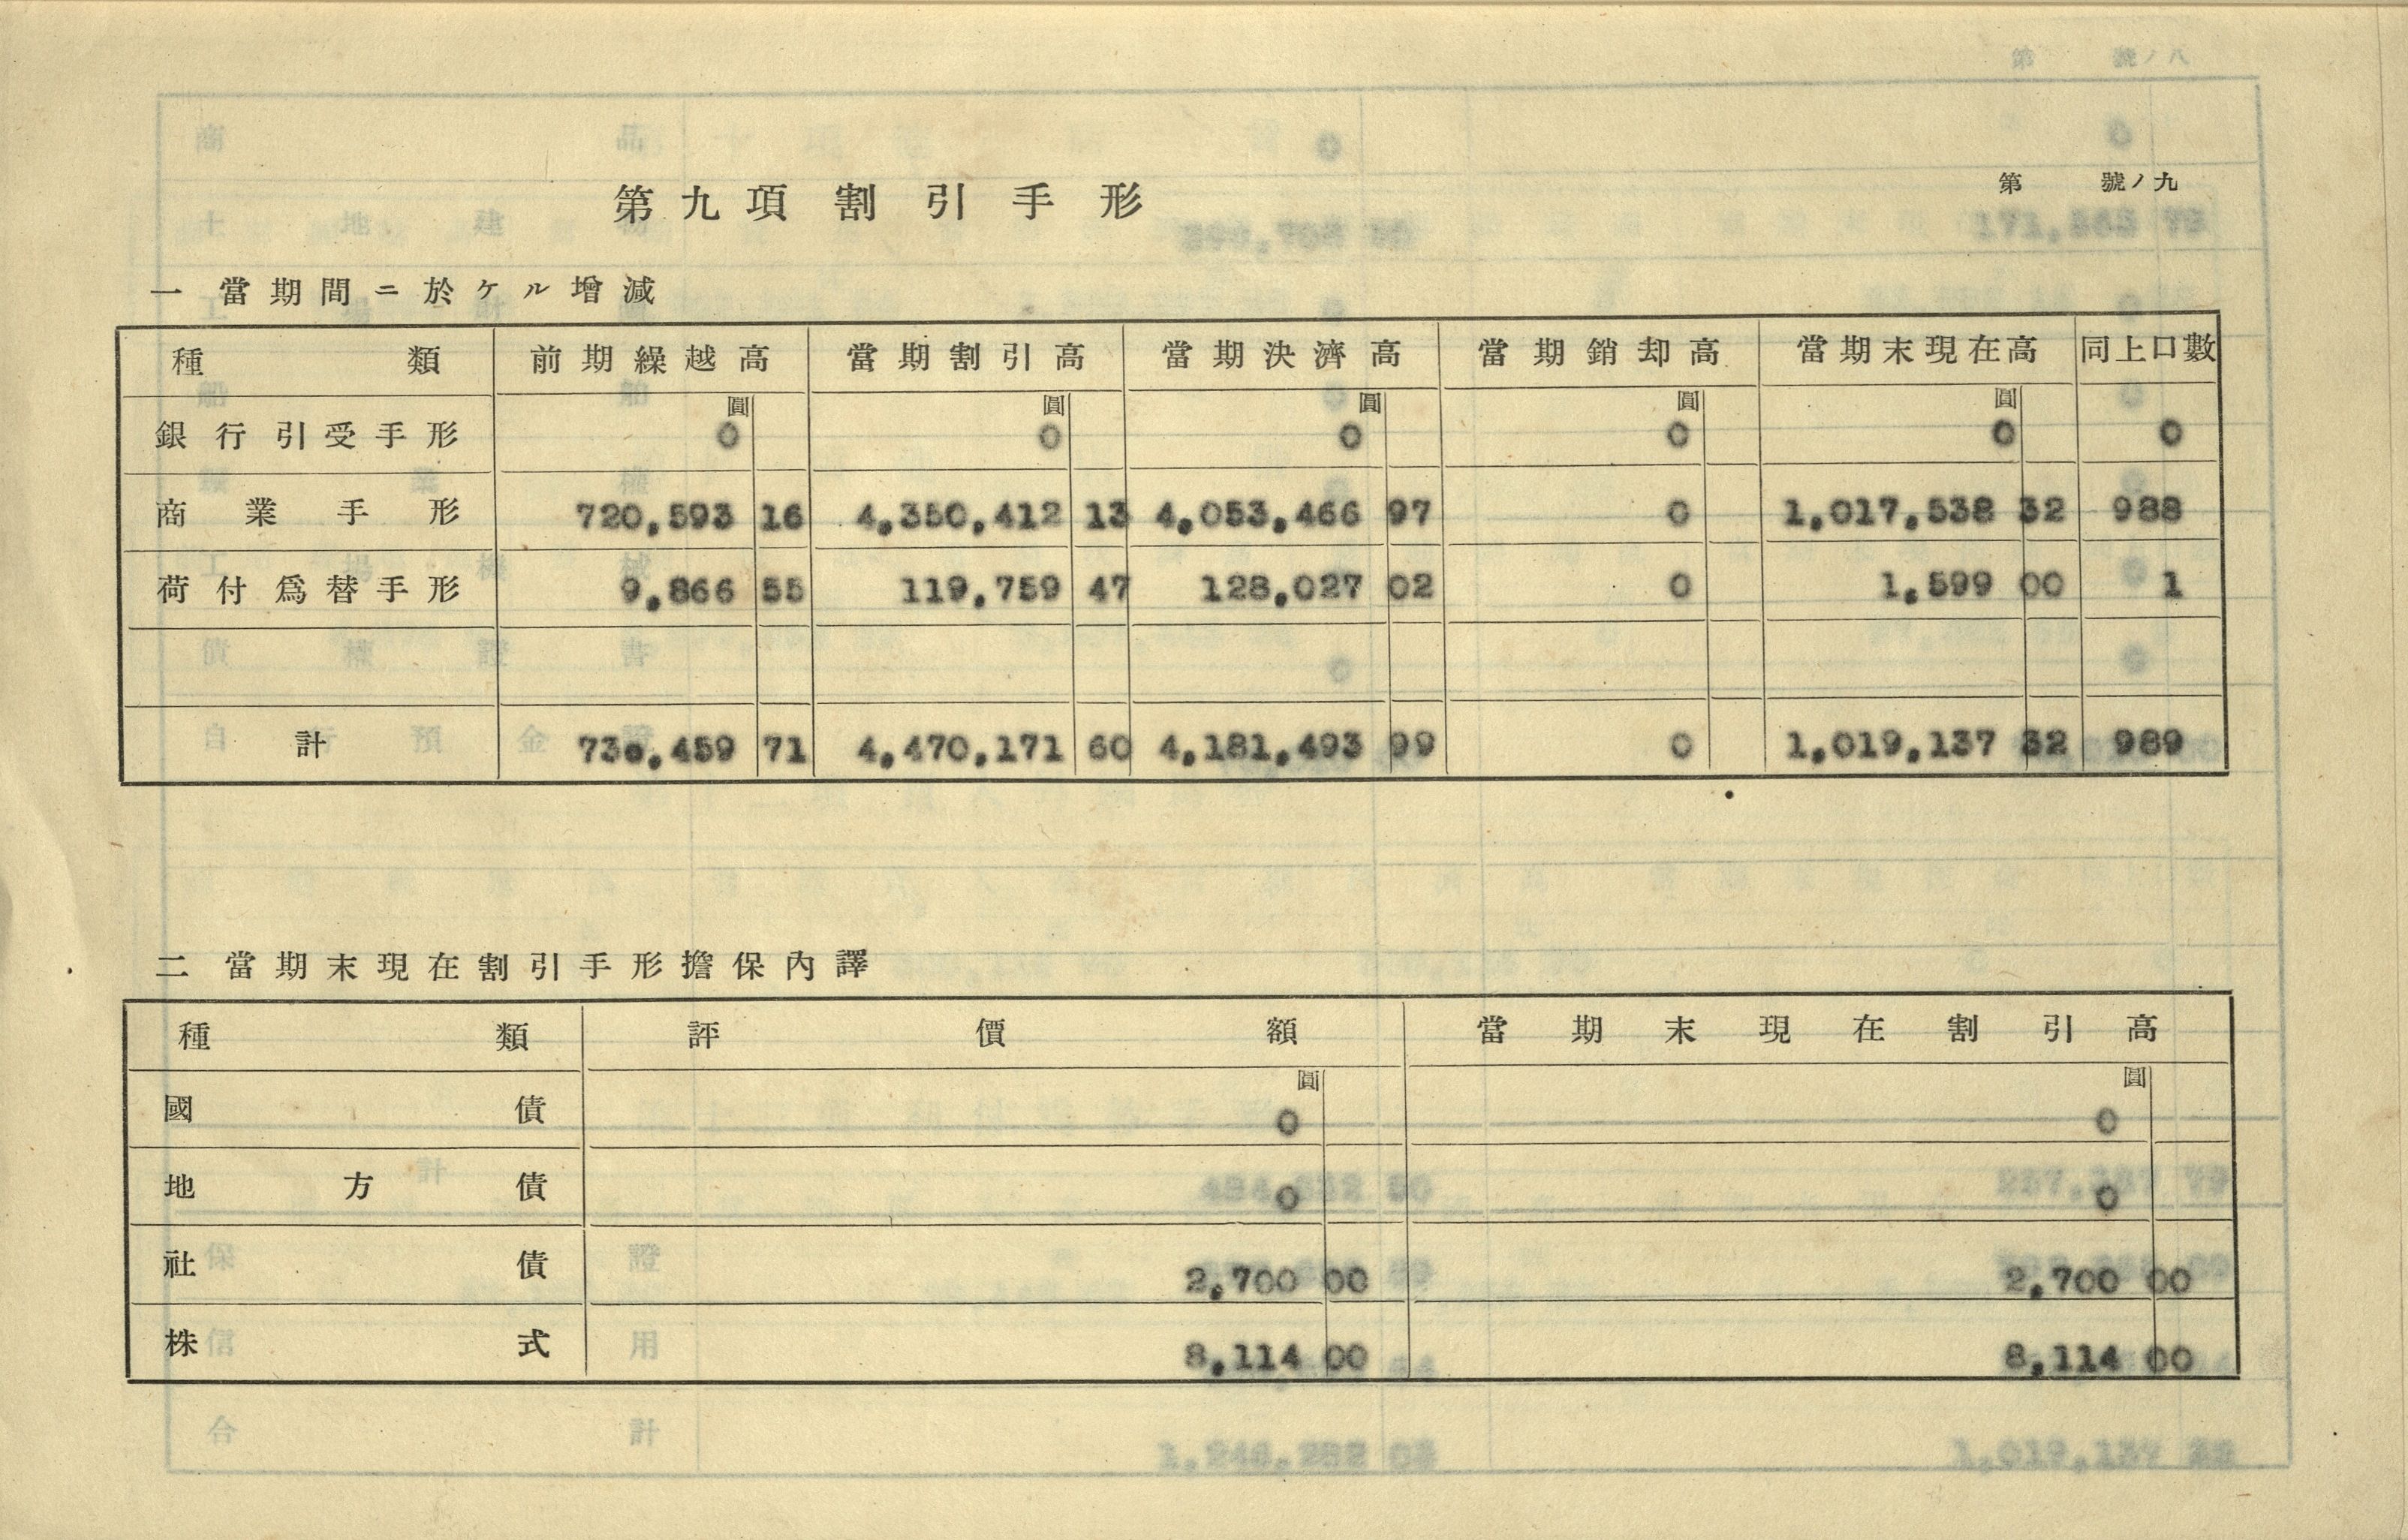 第　號ノ九
第九項 割引手形
一 當期間ニ於ケル增減
種類 前期繰越高 當期割引高 當期決濟高 當期銷却高 當期末現在高 同上口數
圓 圓 圓 圓 圓
銀行引受手形 0 0 0 0 0 0
商業手形 720,593 16 4,350,412 13 4,053,466 97 0 1,017,538 32 988
荷付爲替手形 9,866 55 119,759 47 128,027 02 0 1,599 00 1
計 730,459 71 4,470,171 60 4,181,493 99 0 1,019,137 32 989
二 當期末現在割引手形擔保內譯
種類 評價額 當期末現在割引高
圓 圓
國債 0 0
地方債 0 0
社債 2,700 00 2,700 00
株式 8,114 00 8,114 00